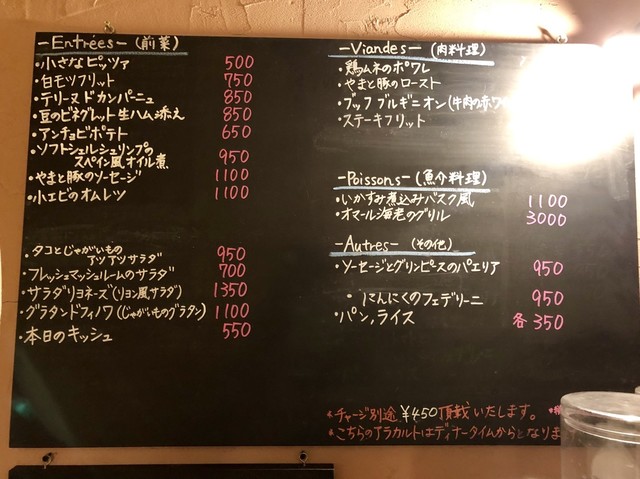 -Entrées- (前菜)
・小さなピッツァ 500
・白モツフリット 750
・テリーヌドカンパーニュ 850
・豆のビネグレット生ハム添え 850
・アンチョビポテト 650
・ソフトシェルシュリンプの
スペイン風オイル煮 950
・やまと豚のソーセージ 1100
・小エビのオムレツ 1100
・タコとじゃがいもの
アツアツサラダ 950
・フレッシュマッシュルームのサラダ 700
・サラダリヨネーズ(リヨン風サラダ) 1350
・グラタンドフィノワ(じゃがいものグラタン) 1100
・本日のキッシュ 550
-Viandes- (肉料理)
・鶏ムネのポワレ
・やまと豚のロースト
・ブッフブルギニオン(牛肉の赤ワ
・ステーキフリット
-Poissons- (魚介料理)
・いかすみ煮込みバスク風 1100
・オマール海老のグリル 3000
-Autres- (その他)
・ソーセージとグリンピースのパエリア 950
・にんにくのフェデリーニ 950
・パン,ライス 各350
*チャージ別途¥450頂戴いたします。
*こちらのアラカルトはディナータイムからとなりま